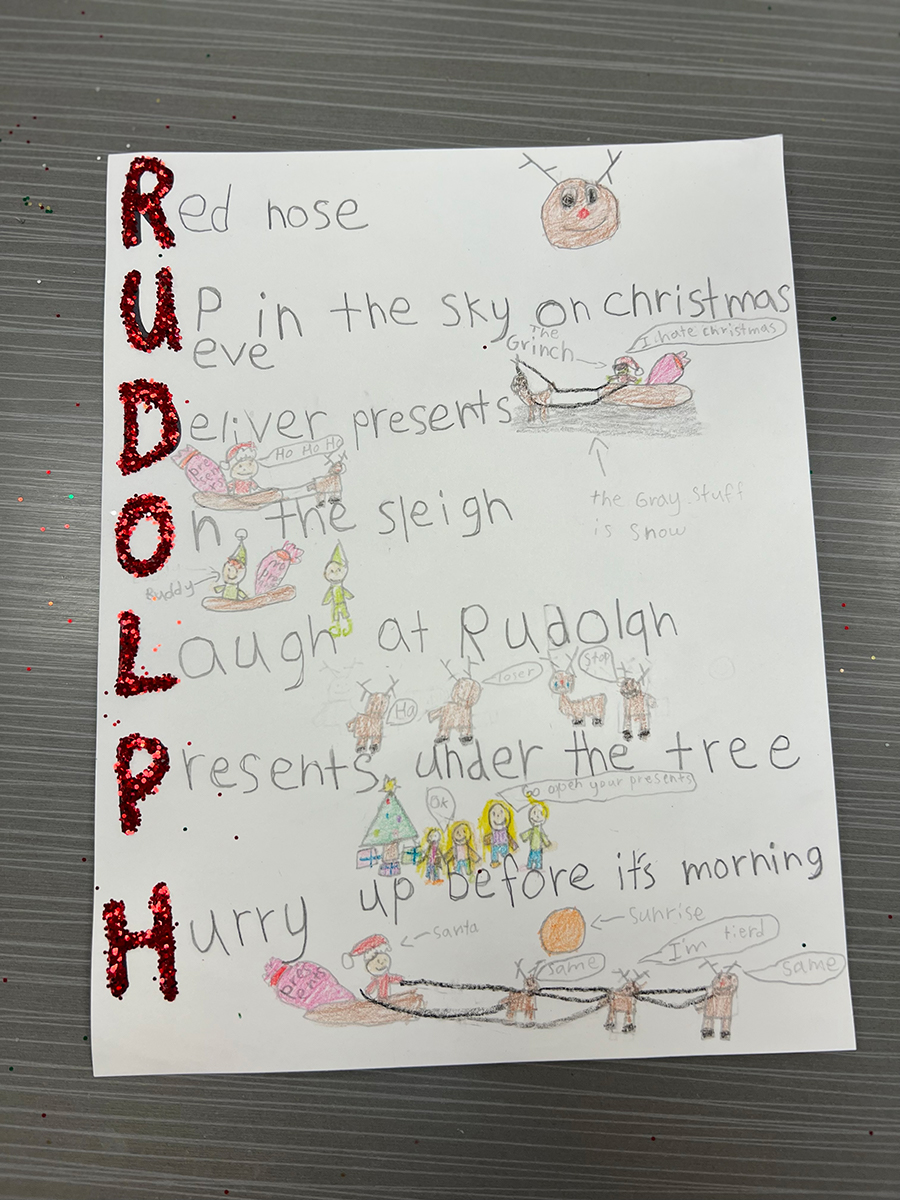 Red nose
UP in the sky on christmas
eve
The
Grinch
I hate christmas
Deliver presents
Ho Ho Ho
present
On the sleigh
the Gray stuff
is snow
Ruddy
Laugh at Rudolgh
Ha
loser
Stop
Presents under the tree
Ok
Go open your presents
Hurry up before it's morning
santa
sunrise
same
I'm tierd
same
presents